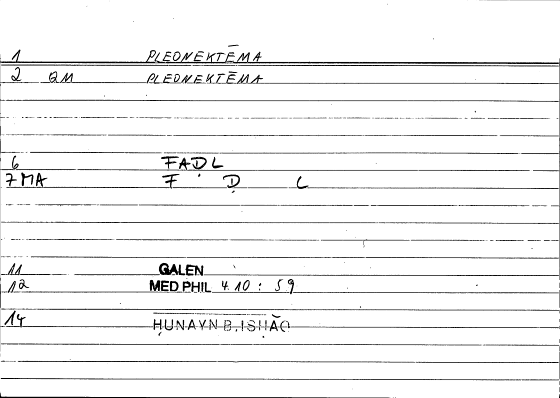 1 PLEONEKTĒMA
2 QM PLEONEKTĒMA
6 FAḌL
7 MA F Ḍ L
11 GALEN
12 MED PHIL 4.10 : 59
14 ḤUNAYN B. ISḤĀQ